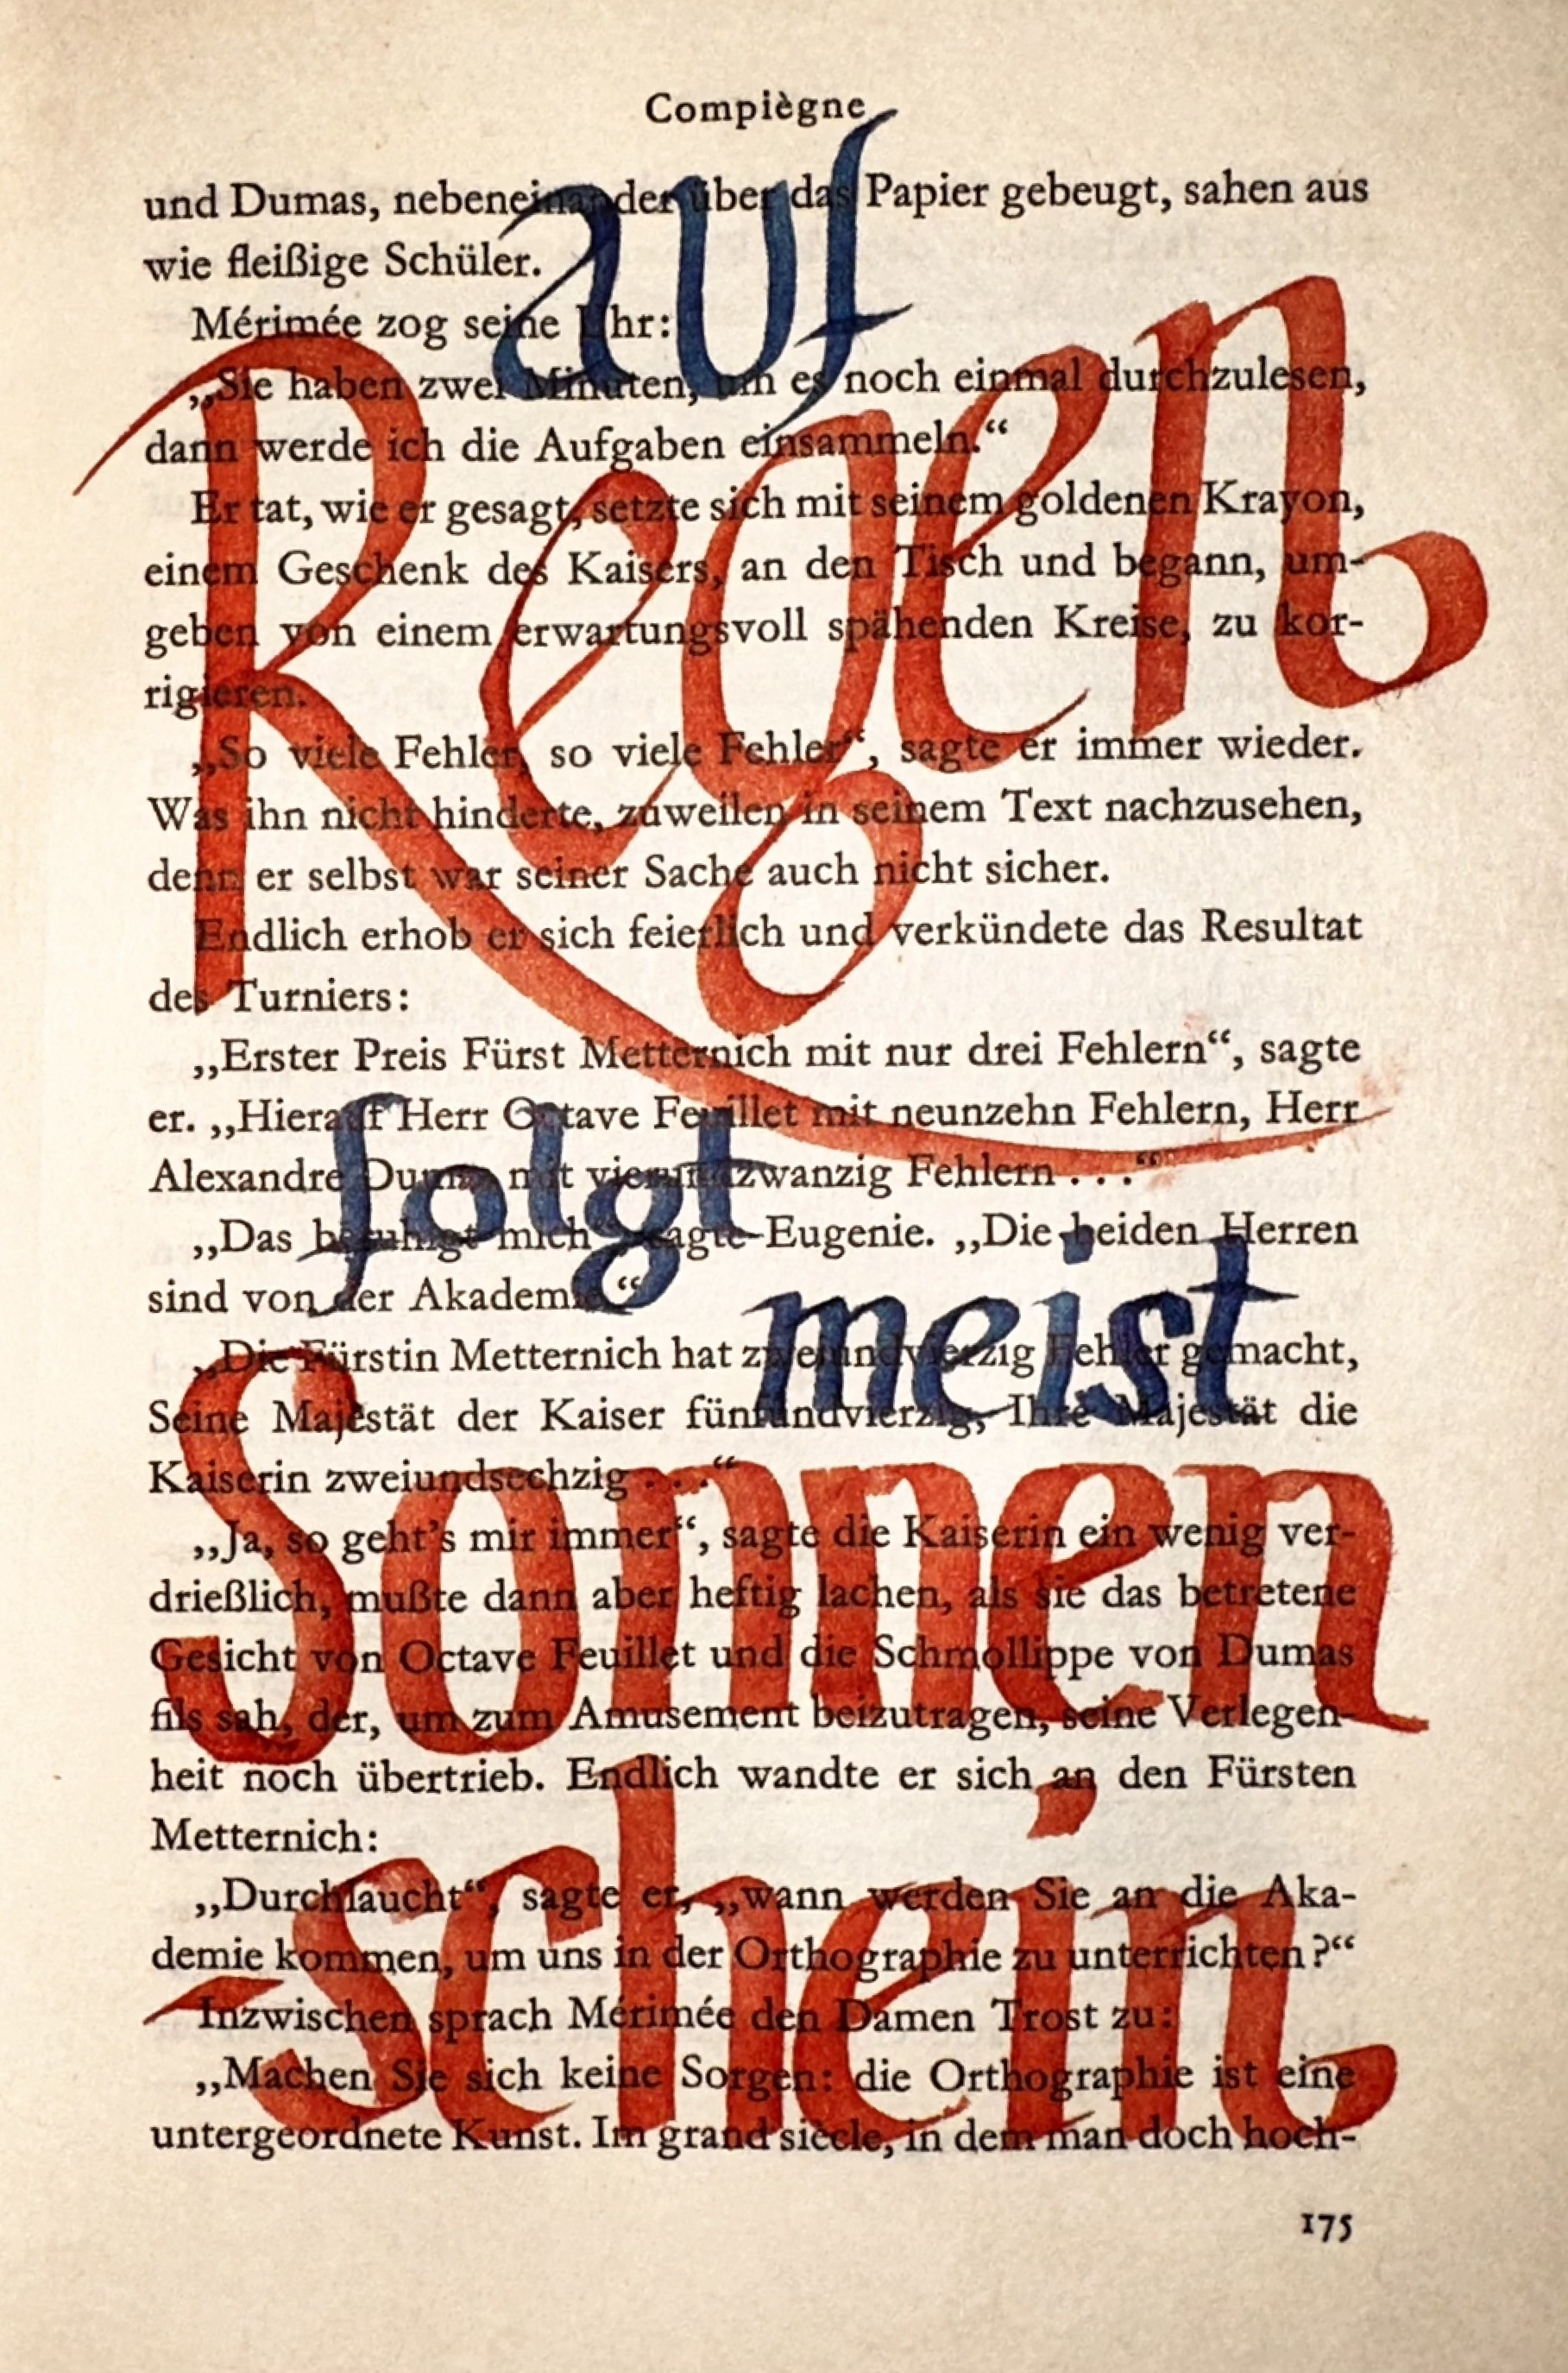 Compiègne
auf
und Dumas, nebeneinander über das Papier gebeugt, sahen aus
wie fleißige Schüler.
Mérimée zog seine Uhr:
„Sie haben zwei Minuten, um es noch einmal durchzulesen,
dann werde ich die Aufgaben einsammeln.“
Regen
Er tat, wie er gesagt, setzte sich mit seinem goldenen Krayon,
einem Geschenk des Kaisers, an den Tisch und begann, um-
geben von einem erwartungsvoll spähenden Kreise, zu kor-
rigieren.
„So viele Fehler, so viele Fehler“, sagte er immer wieder.
Was ihn nicht hinderte, zuweilen in seinem Text nachzusehen,
denn er selbst war seiner Sache auch nicht sicher.
Endlich erhob er sich feierlich und verkündete das Resultat
des Turniers:
„Erster Preis Fürst Metternich mit nur drei Fehlern“, sagte
er. „Hierauf Herr Octave Feuillet mit neunzehn Fehlern, Herr
Alexandre Dumas mit vierundzwanzig Fehlern . . .“
folgt
„Das beruhigt mich“, sagte Eugenie. „Die beiden Herren
sind von der Akademie.“
meist
„Die Fürstin Metternich hat zweiundvierzig Fehler gemacht,
Seine Majestät der Kaiser fünfundvierzig, Ihre Majestät die
Kaiserin zweiundsechzig . . .“
„Ja, so geht’s mir immer“, sagte die Kaiserin ein wenig ver-
drießlich, mußte dann aber heftig lachen, als sie das betretene
Sonnen
Gesicht von Octave Feuillet und die Schmollippe von Dumas
fils sah, der, um zum Amusement beizutragen, seine Verlegen-
heit noch übertrieb. Endlich wandte er sich an den Fürsten
Metternich:
„Durchlaucht“, sagte er, „wann werden Sie an die Aka-
demie kommen, um uns in der Orthographie zu unterrichten?“
schein
Inzwischen sprach Mérimée den Damen Trost zu:
„Machen Sie sich keine Sorgen: die Orthographie ist eine
untergeordnete Kunst. Im grand siècle, in dem man doch hoch-
175